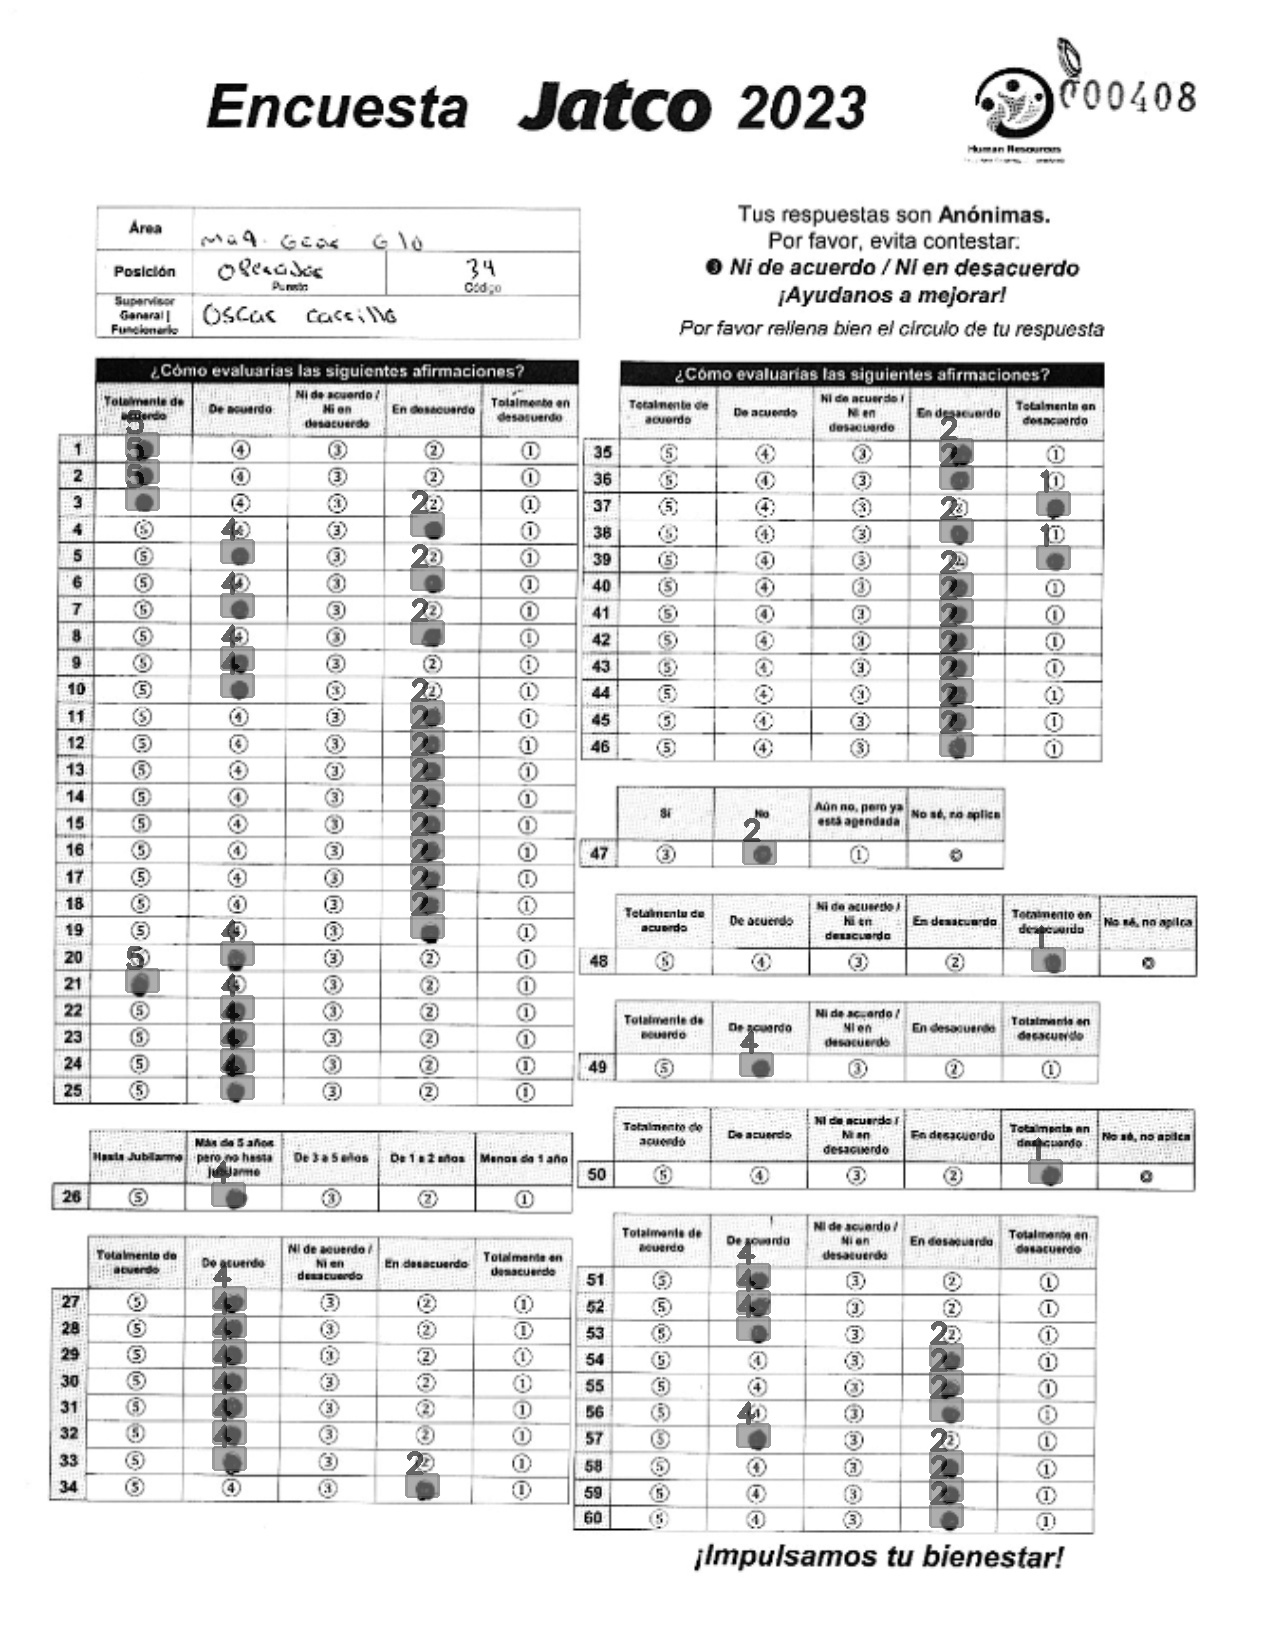 Encuesta Jatco 2023
000408
Human Resources
Área
Maq. Gear G10
Posición
Operador
34
Puesto
Código
Supervisor General | Funcionario
Oscar Carrillo
Tus respuestas son Anónimas.
Por favor, evita contestar:
❸ Ni de acuerdo / Ni en desacuerdo
¡Ayudanos a mejorar!
Por favor rellena bien el circulo de tu respuesta
¿Cómo evaluarias las siguientes afirmaciones?
Totalmente de acuerdo De acuerdo Ni de acuerdo / Ni en desacuerdo En desacuerdo Totalmente en desacuerdo
1 5 ④ ③ ② ①
2 5 ④ ③ ② ①
3 5 ④ ③ ② ①
4 ⑤ ④ ③ 2 ①
5 ⑤ 4 ③ ② ①
6 ⑤ ④ ③ 2 ①
7 ⑤ 4 ③ ② ①
8 ⑤ ④ ③ 2 ①
9 ⑤ 4 ③ ② ①
10 ⑤ 4 ③ ② ①
11 ⑤ ④ ③ 2 ①
12 ⑤ ④ ③ 2 ①
13 ⑤ ④ ③ 2 ①
14 ⑤ ④ ③ 2 ①
15 ⑤ ④ ③ 2 ①
16 ⑤ ④ ③ 2 ①
17 ⑤ ④ ③ 2 ①
18 ⑤ ④ ③ 2 ①
19 ⑤ ④ ③ 2 ①
20 ⑤ 4 ③ ② ①
21 5 ④ ③ ② ①
22 ⑤ 4 ③ ② ①
23 ⑤ 4 ③ ② ①
24 ⑤ 4 ③ ② ①
25 ⑤ 4 ③ ② ①
Hasta Jubilarme Más de 5 años pero no hasta jubilarme De 3 a 5 años De 1 a 2 años Menos de 1 año
26 ⑤ 4 ③ ② ①
Totalmente de acuerdo De acuerdo Ni de acuerdo / Ni en desacuerdo En desacuerdo Totalmente en desacuerdo
27 ⑤ 4 ③ ② ①
28 ⑤ 4 ③ ② ①
29 ⑤ 4 ③ ② ①
30 ⑤ 4 ③ ② ①
31 ⑤ 4 ③ ② ①
32 ⑤ 4 ③ ② ①
33 ⑤ 4 ③ ② ①
34 ⑤ ④ ③ 2 ①
¿Cómo evaluarias las siguientes afirmaciones?
Totalmente de acuerdo De acuerdo Ni de acuerdo / Ni en desacuerdo En desacuerdo Totalmente en desacuerdo
35 ⑤ ④ ③ 2 ①
36 ⑤ ④ ③ 2 ①
37 ⑤ ④ ③ ② 1
38 ⑤ ④ ③ 2 ①
39 ⑤ ④ ③ ② 1
40 ⑤ ④ ③ 2 ①
41 ⑤ ④ ③ 2 ①
42 ⑤ ④ ③ 2 ①
43 ⑤ ④ ③ 2 ①
44 ⑤ ④ ③ 2 ①
45 ⑤ ④ ③ 2 ①
46 ⑤ ④ ③ 2 ①
Sí No Aún no, pero ya está agendada No sé, no aplica
47 ③ 2 ① ⓪
Totalmente de acuerdo De acuerdo Ni de acuerdo / Ni en desacuerdo En desacuerdo Totalmente en desacuerdo No sé, no aplica
48 ⑤ ④ ③ ② 1 ⓪
Totalmente de acuerdo De acuerdo Ni de acuerdo / Ni en desacuerdo En desacuerdo Totalmente en desacuerdo
49 ⑤ 4 ③ ② ①
Totalmente de acuerdo De acuerdo Ni de acuerdo / Ni en desacuerdo En desacuerdo Totalmente en desacuerdo No sé, no aplica
50 ⑤ ④ ③ ② 1 ⓪
Totalmente de acuerdo De acuerdo Ni de acuerdo / Ni en desacuerdo En desacuerdo Totalmente en desacuerdo
51 ⑤ 4 ③ ② ①
52 ⑤ 4 ③ ② ①
53 ⑤ 4 ③ ② ①
54 ⑤ ④ ③ 2 ①
55 ⑤ ④ ③ 2 ①
56 ⑤ ④ ③ 2 ①
57 ⑤ 4 ③ ② ①
58 ⑤ ④ ③ 2 ①
59 ⑤ ④ ③ 2 ①
60 ⑤ ④ ③ 2 ①
¡Impulsamos tu bienestar!